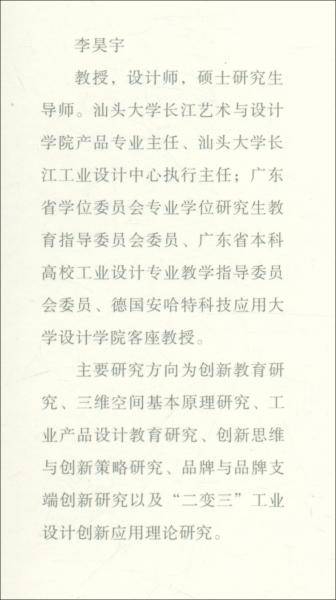 李昊宇
教授，设计师，硕士研究生
导师。汕头大学长江艺术与设计
学院产品专业主任、汕头大学长
江工业设计中心执行主任；广东
省学位委员会专业学位研究生教
育指导委员会委员、广东省本科
高校工业设计专业教学指导委员
会委员、德国安哈特科技应用大
学设计学院客座教授。
主要研究方向为创新教育研
究、三维空间基本原理研究、工
业产品设计教育研究、创新思维
与创新策略研究、品牌与品牌支
端创新研究以及“二变三”工业
设计创新应用理论研究。